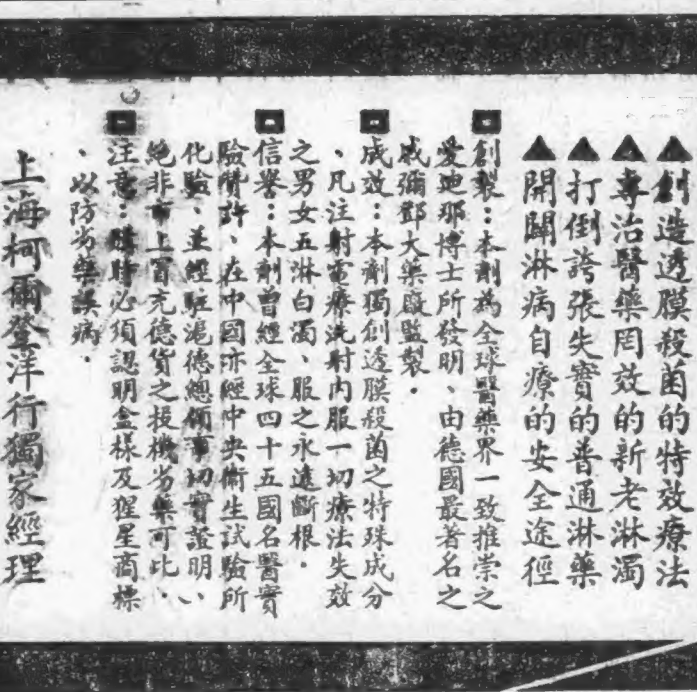 ▲創造透膜殺菌的特效療法
▲專治醫藥罔效的新老淋濁
▲打倒誇張失實的普通淋藥
▲開闢淋病自療的安全途徑
創製：本劑為全球醫藥界一致推崇之
愛迪耶博士所發明、由德國最著名之
威彌鄧大藥廠監製．
成效：本劑獨創透膜殺菌之特殊成分
、凡注射電療洗射內服一切療法失效
之男女五淋白濁、服之永遠斷根．
信譽：本劑曾經全球四十五國名醫實
驗贊許、在中國亦經中央衛生試驗所
化驗、並經駐滬德總領事切實證明、
絕非市上冒充德貨之投機劣藥可比．
注意：購時必須認明盒樣及猩星商標
、以防劣藥誤病．
上海柯爾登洋行獨家經理